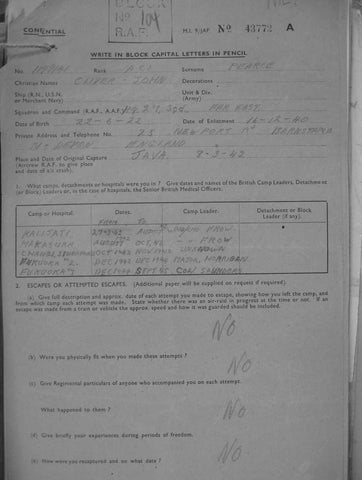 BLOCK
Nº 104
R.A.F.
CONFIDENTIAL
M.I. 9/JAP Nº 43772 A
WRITE IN BLOCK CAPITAL LETTERS IN PENCIL
No. Rank Surname PEARCE
Christian Names OLIVER - JOHN. Decorations
Ship (R.N., U.S.N. or Merchant Navy) Unit & Div. (Army)
Squadron and Command (R.A.F., A.A.F.) Sqd. FAR EAST.
Date of Birth 22-6-22 Date of Enlistment 16-12-40
Private Address and Telephone No. 23 NEWPORT RD BARNSTAPLE
N. DEVON ENGLAND
Place and Date of Original Capture JAVA. 8-3-42
(Aircrew R.A.F. to give place and date of a/c crash).
1. What camps, detachments or hospitals were you in? Give dates and names of the British Camp Leaders, Detachment (or Block) Leaders or, in the case of hospitals, the Senior British Medical Officers.
Camp or Hospital. Dates. Camp Leader. Detachment or Block Leader (if any).
FROM TO
KALIJATI FROW.
MAKASURA AUGUST OCT, 42 " " FROW
OCT 1942 NOV 1942 UNKNOWN
FUKUOKA 2. DEC 1942 DEC 1944 MAJOR HORRIGAN
FUKUOKA DEC 1944 SEPT 45 COL SAUNDERS
2. ESCAPES OR ATTEMPTED ESCAPES. (Additional paper will be supplied on request if required).
(a) Give full description and approx. date of each attempt you made to escape, showing how you left the camp, and from which camp each attempt was made. State whether there was an air-raid in progress at the time or not. If an escape was made from a train or vehicle the approx. speed and how it was guarded should be included.
NO
(b) Were you physically fit when you made these attempts?
NO
(c) Give Regimental particulars of anyone who accompanied you on each attempt.
What happened to them?
NO
(d) Give briefly your experiences during periods of freedom.
NO
(e) How were you recaptured and on what date?